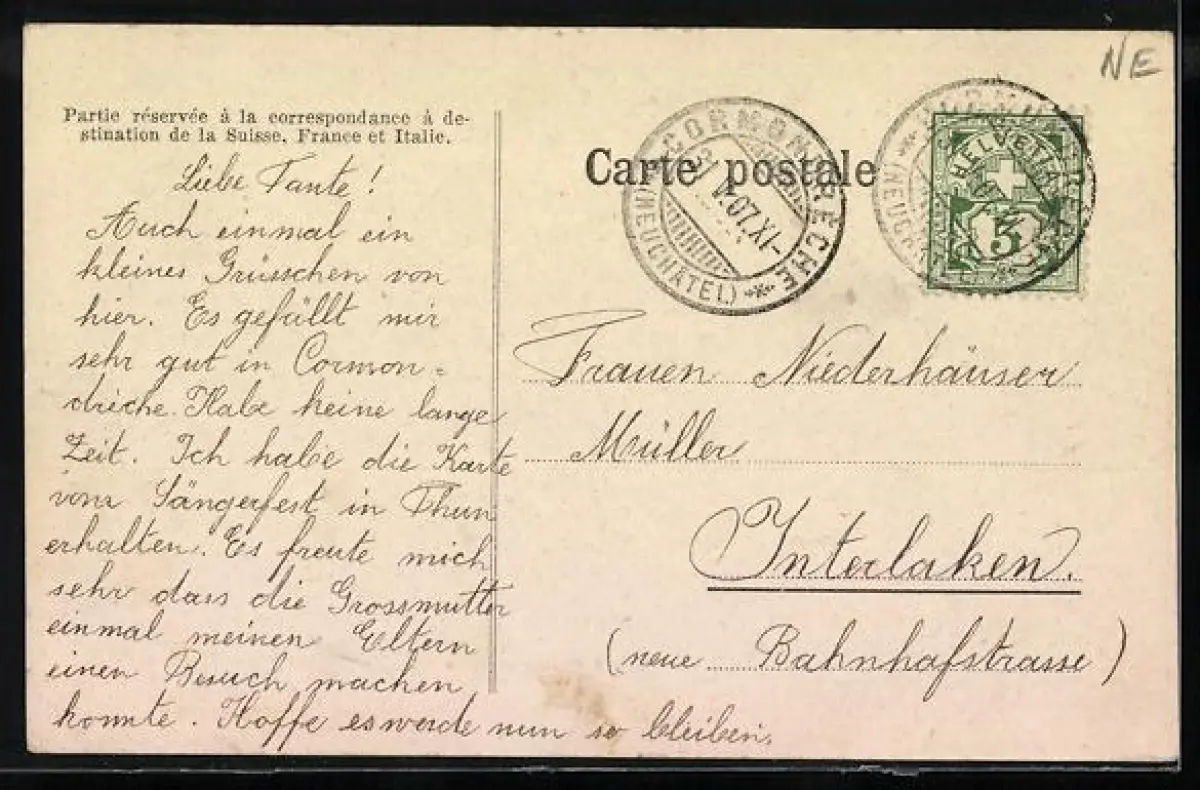 NE
Partie réservée à la correspondance à de-
stination de la Suisse, France et Italie.
Carte postale
CORMONDRÈCHE
31 V.07.XI-
(NEUCHÂTEL)
HELVETIA
5
Liebe Tante!
Auch einmal ein
kleines Grüsschen von
hier. Es gefällt mir
sehr gut in Cormon=
drèche. Habe keine lange
Zeit. Ich habe die Karte
vom Sängerfest in Thun
erhalten. Es freute mich
sehr dass die Grossmutter
einmal meinen Eltern
einen Besuch machen
konnte. Hoffe es werde nun so bleiben.
Frauen Niederhäuser
Müller
Interlaken.
(neue Bahnhafstrasse)